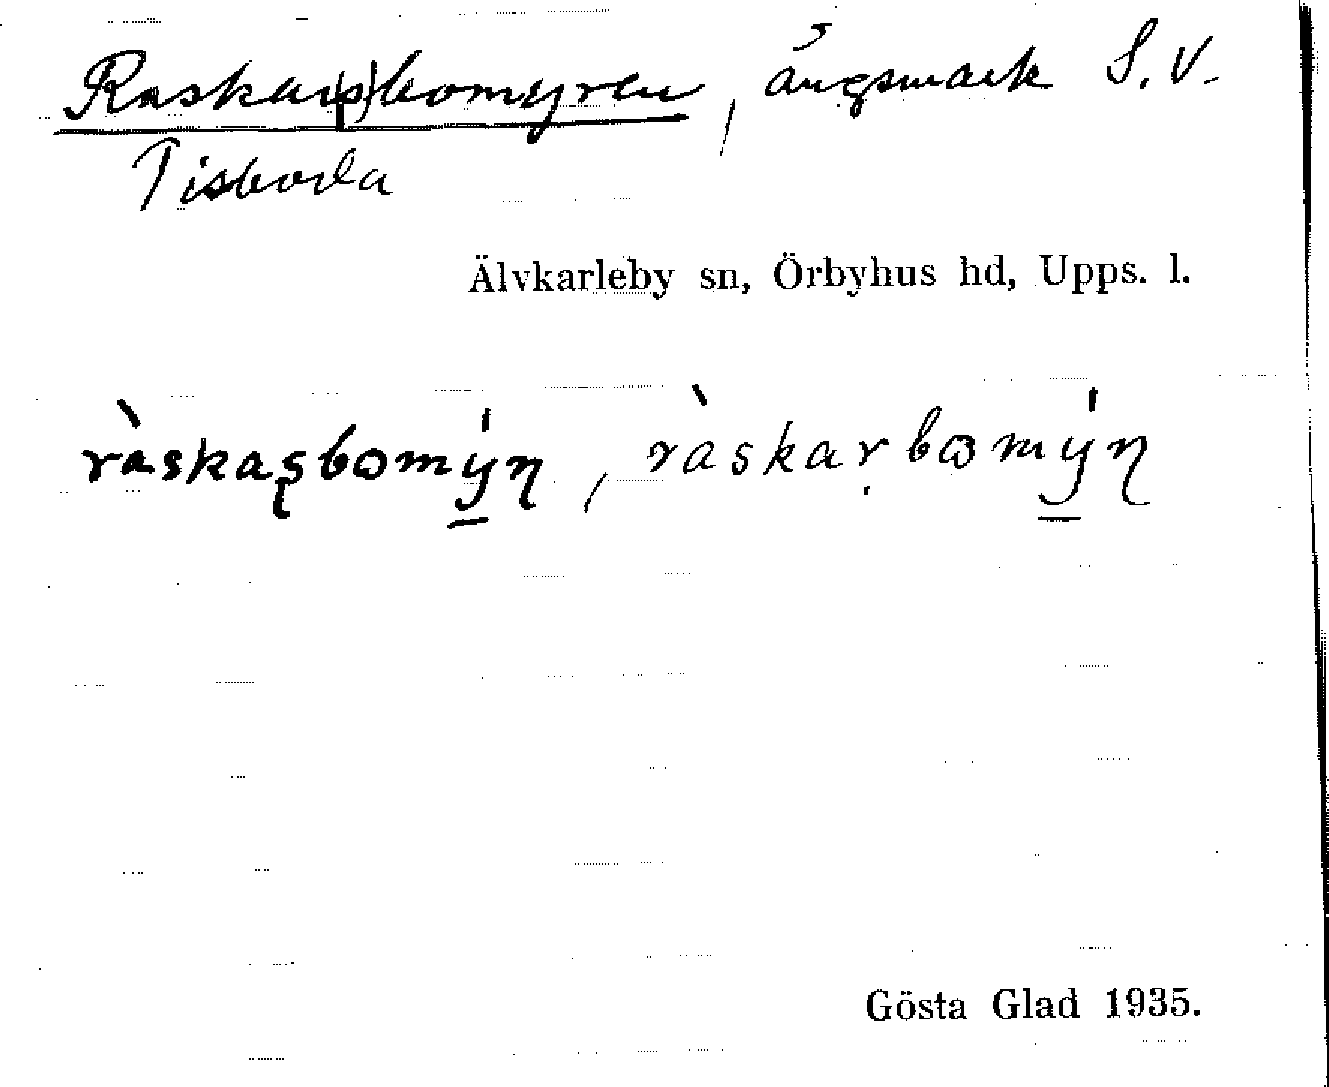 Raskar(s)bomyren, ängsmark S.V.
Tisboda
Älvkarleby sn, Örbyhus hd, Upps. l.
ràskaʂbomýn̥, ràskarbomýn̥
Gösta Glad 1935.